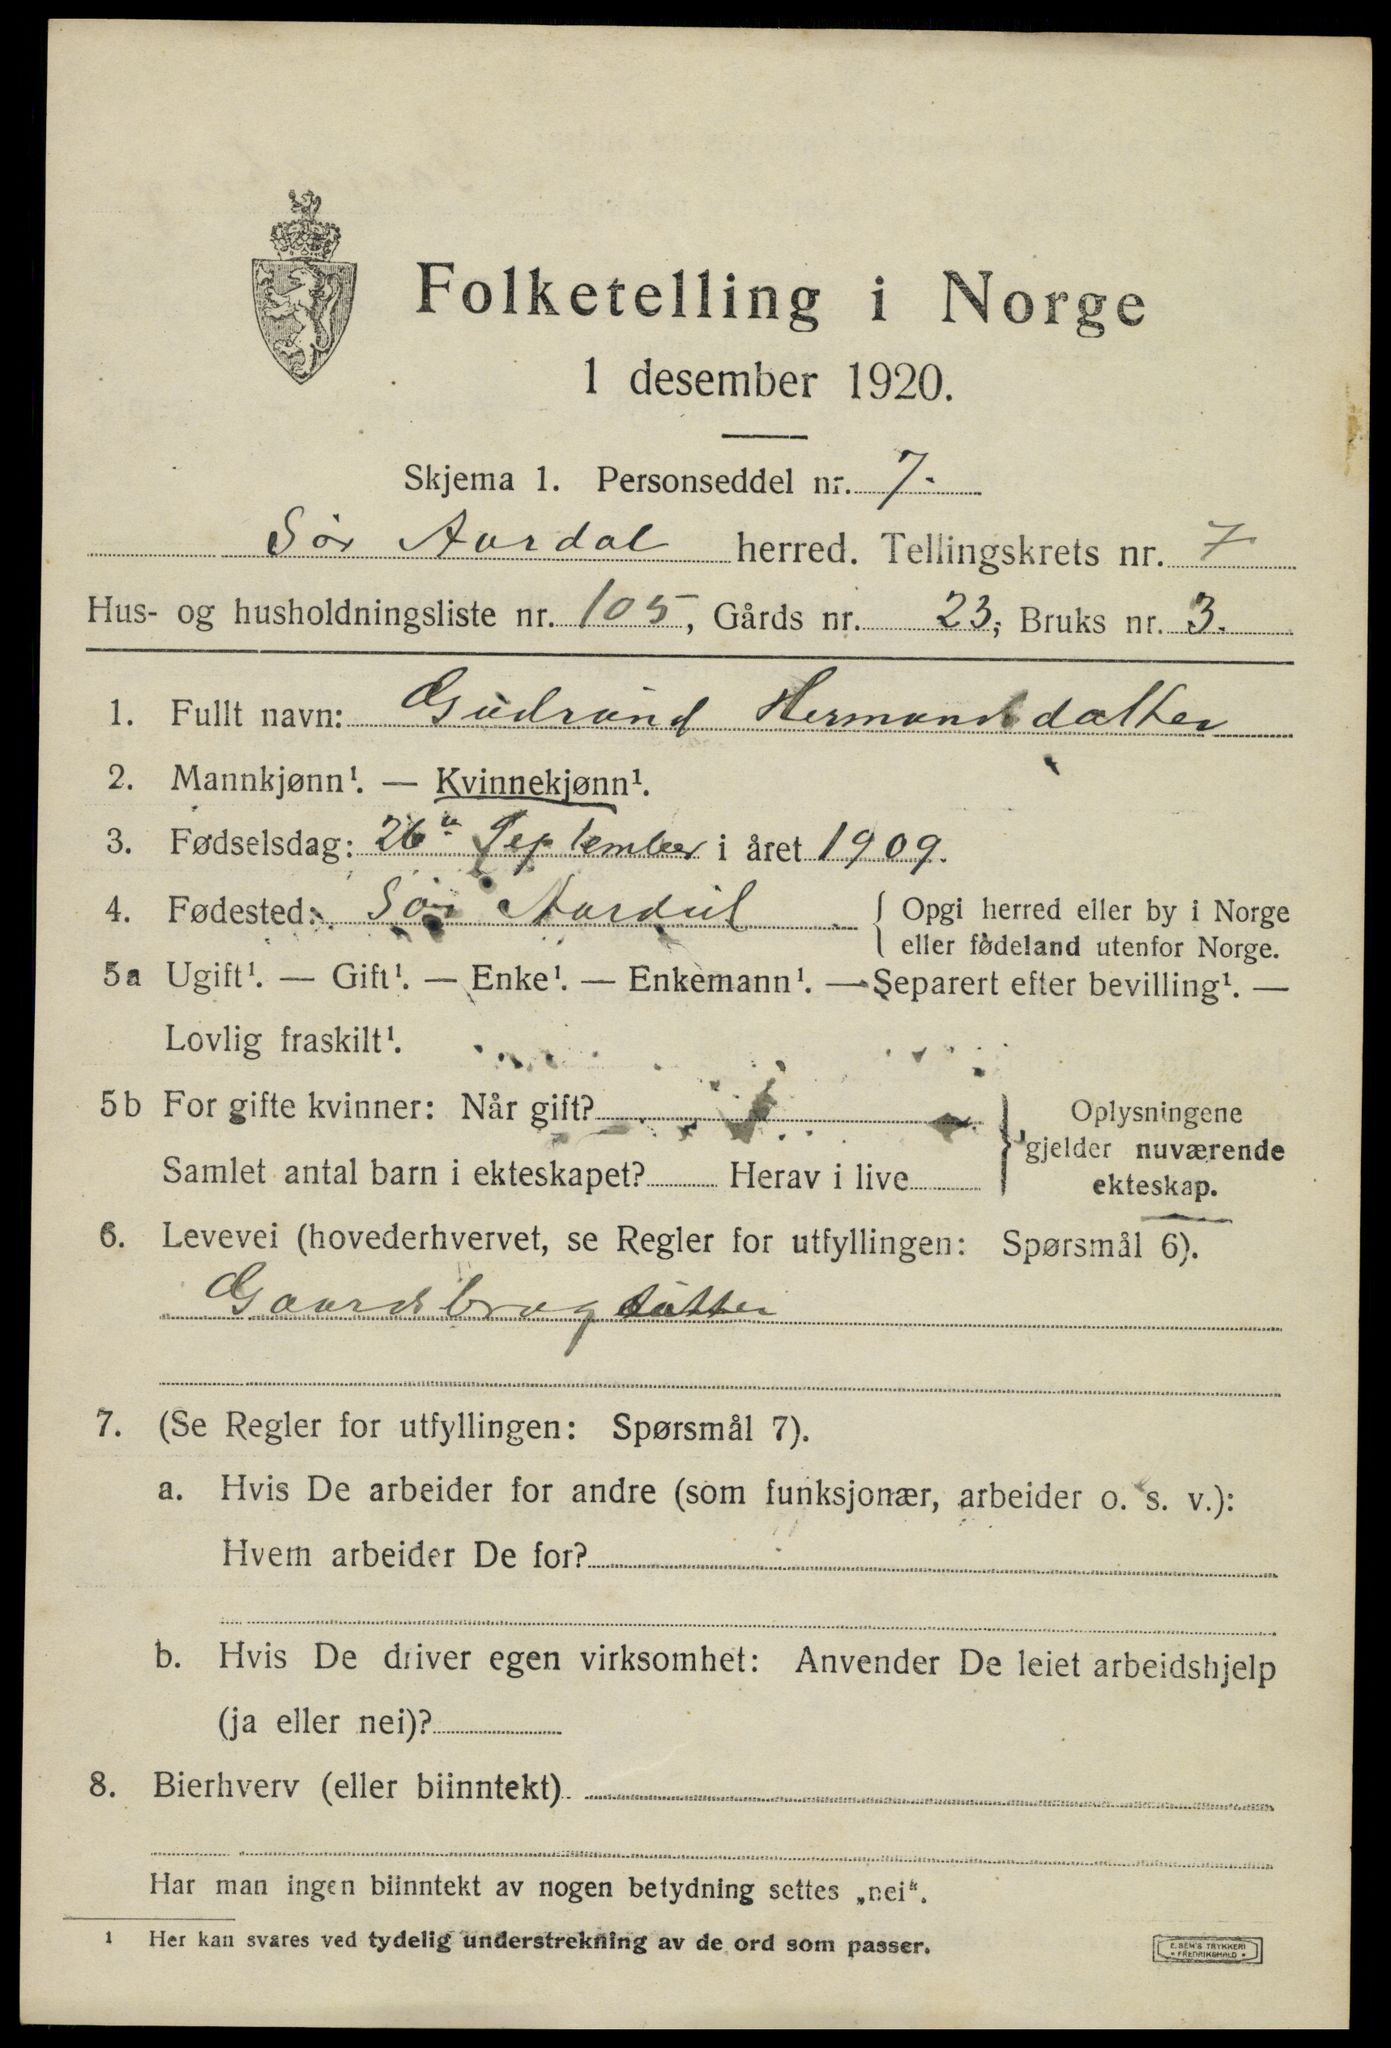 Folketelling i Norge
1 desember 1920.
Skjema 1. Personseddel nr. 7.
Sør Aurdal herred. Tellingskrets nr. 7
Hus- og husholdningsliste nr. 105, Gårds nr. 23, Bruks nr. 3.
1. Fullt navn: Gudrund Hermandsdatter
2. Mannkjønn¹. — Kvinnekjønn¹.
3. Fødselsdag: 26de September i året 1909.
4. Fødested: Sør Aurdal { Opgi herred eller by i Norge
eller fødeland utenfor Norge.
5a Ugift¹. — Gift¹. — Enke¹. — Enkemann¹. — Separert efter bevilling¹. —
Lovlig fraskilt¹.
5b For gifte kvinner: Når gift? } Oplysningene
gjelder nuværende
Samlet antal barn i ekteskapet? Herav i live
ekteskap.
6. Levevei (hovederhvervet, se Regler for utfyllingen: Spørsmål 6).
Gaardsbrug datter
7. (Se Regler for utfyllingen: Spørsmål 7).
a. Hvis De arbeider for andre (som funksjonær, arbeider o. s. v.):
Hvem arbeider De for?
b. Hvis De driver egen virksomhet: Anvender De leiet arbeidshjelp
(ja eller nei)?
8. Bierhverv (eller biinntekt)
Har man ingen biinntekt av nogen betydning settes „nei“.
1 Her kan svares ved tydelig understrekning av de ord som passer.
E. SEM'S TRYKKERI
* FREDRIKSHALD *